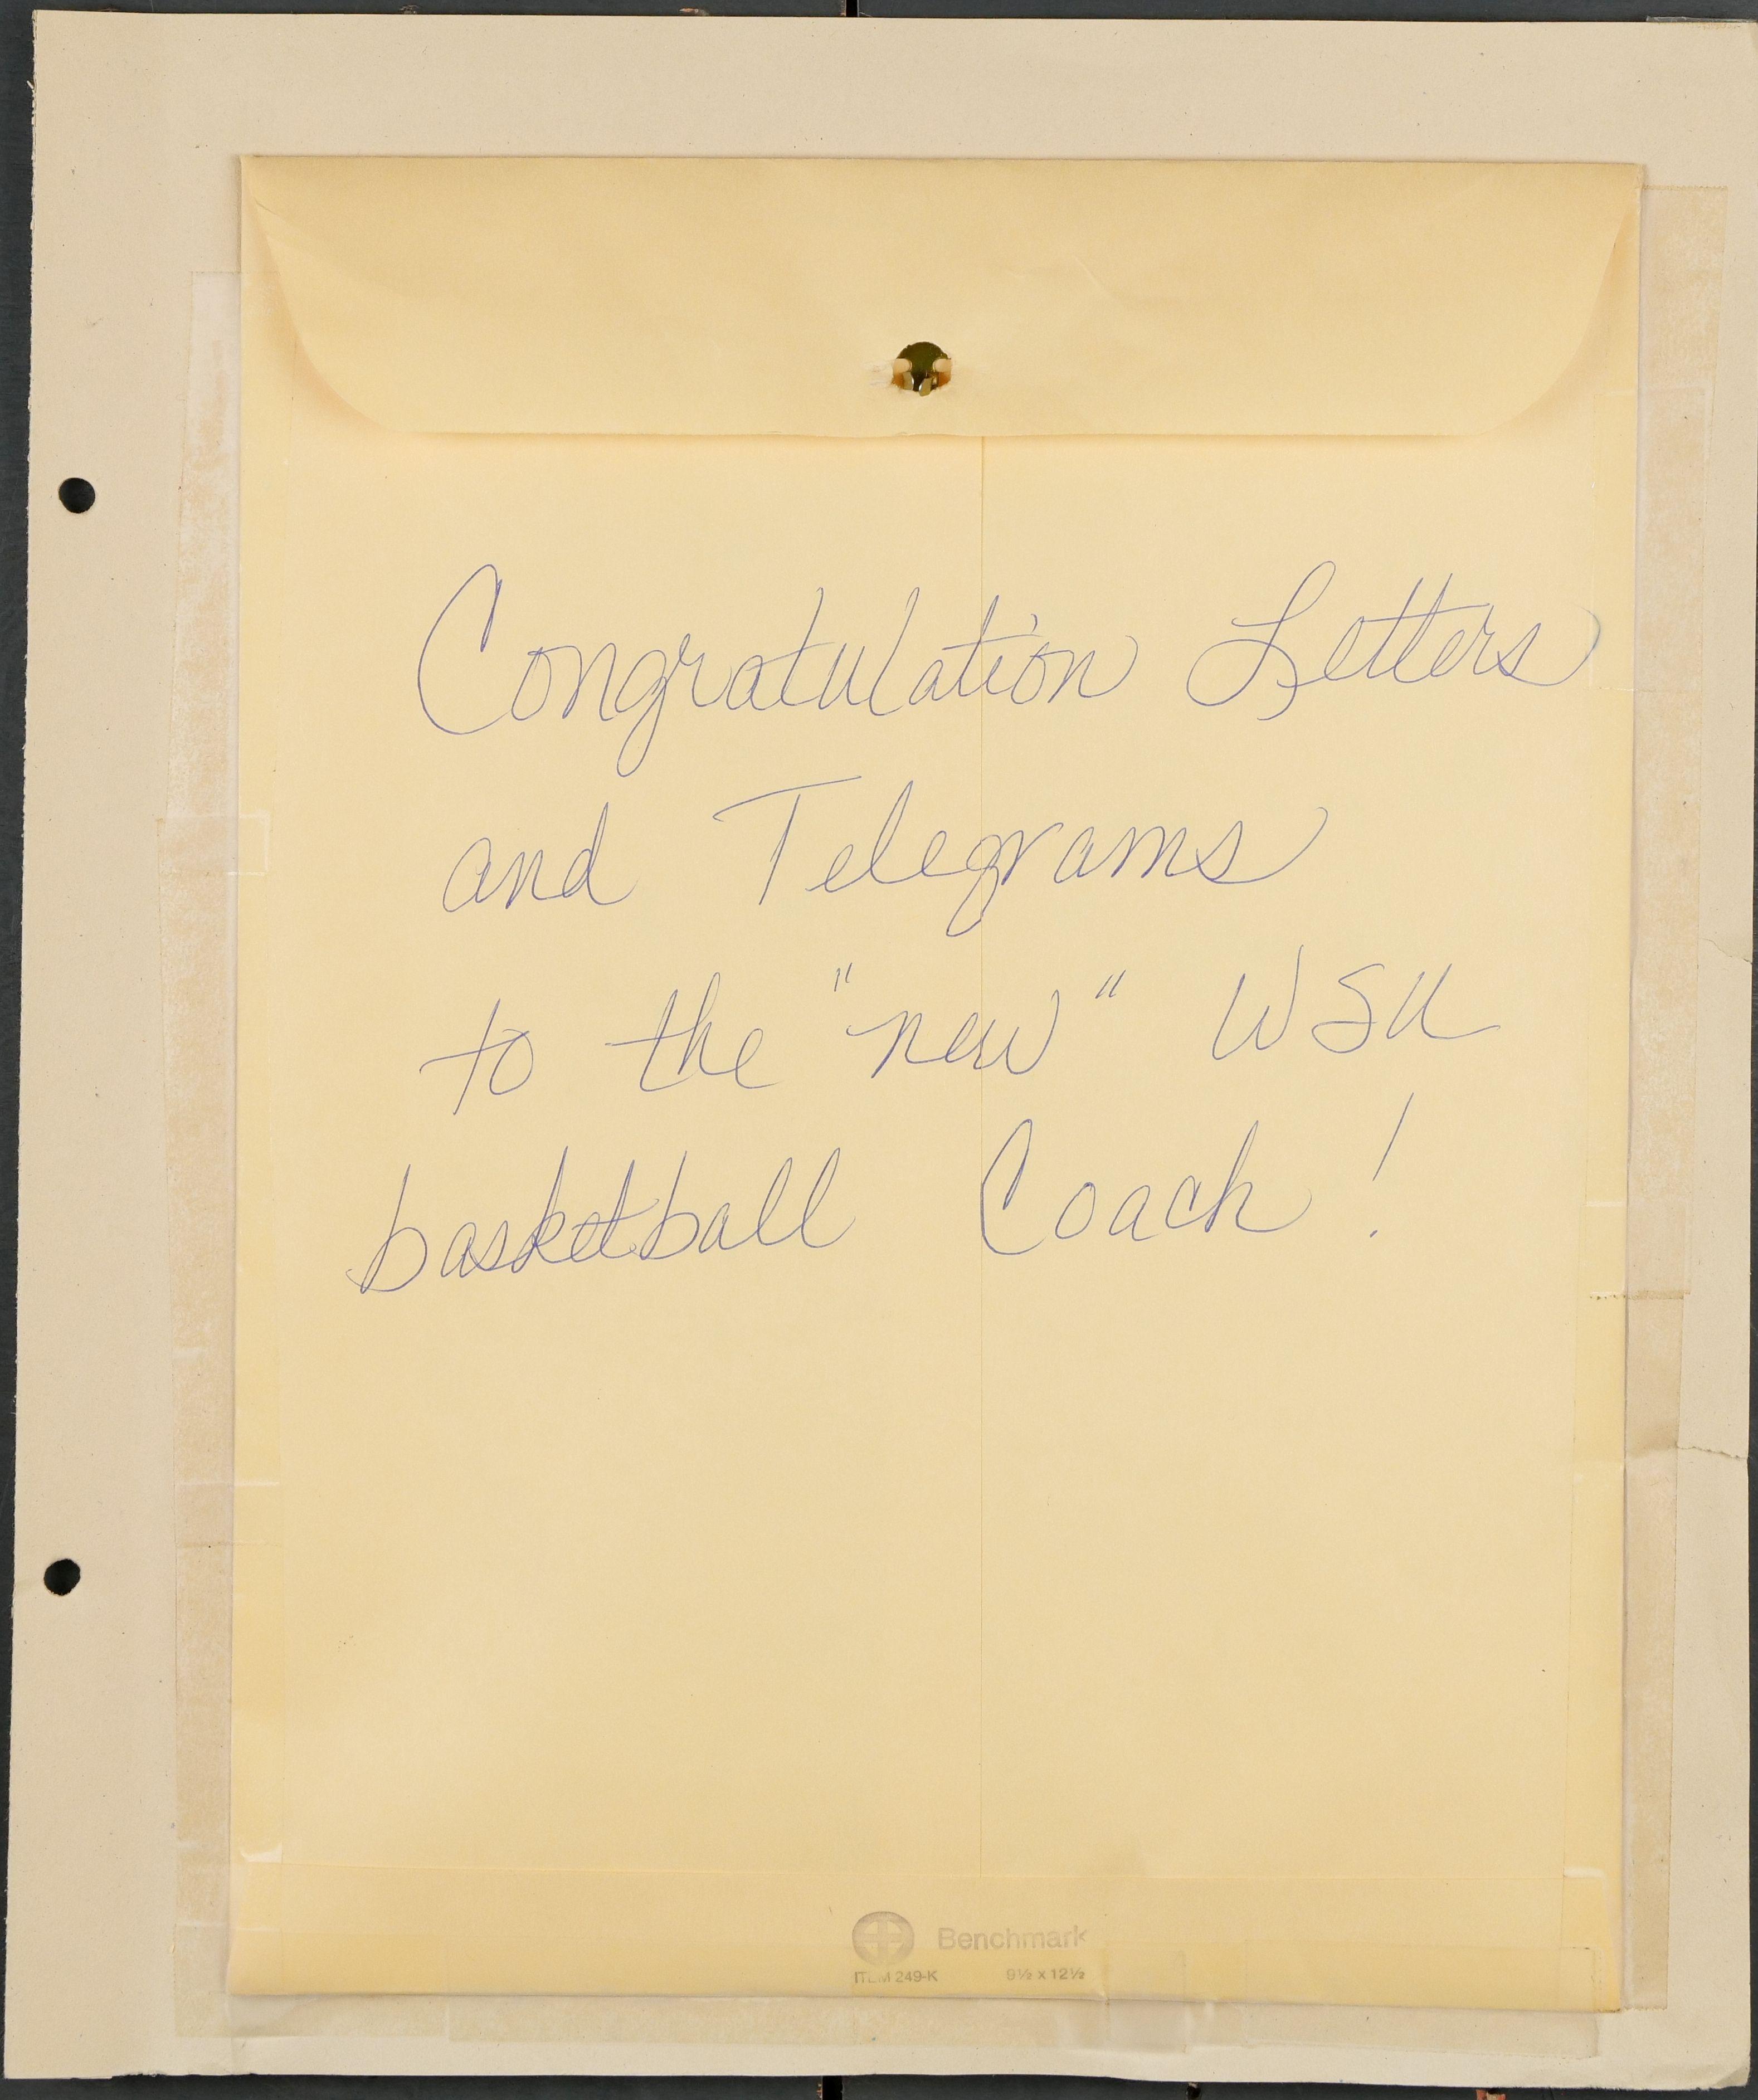 Congratulation Letters
and Telegrams
to the "new" WSU
basketball Coach!
Benchmark
ITEM 249-K 9½ x 12½